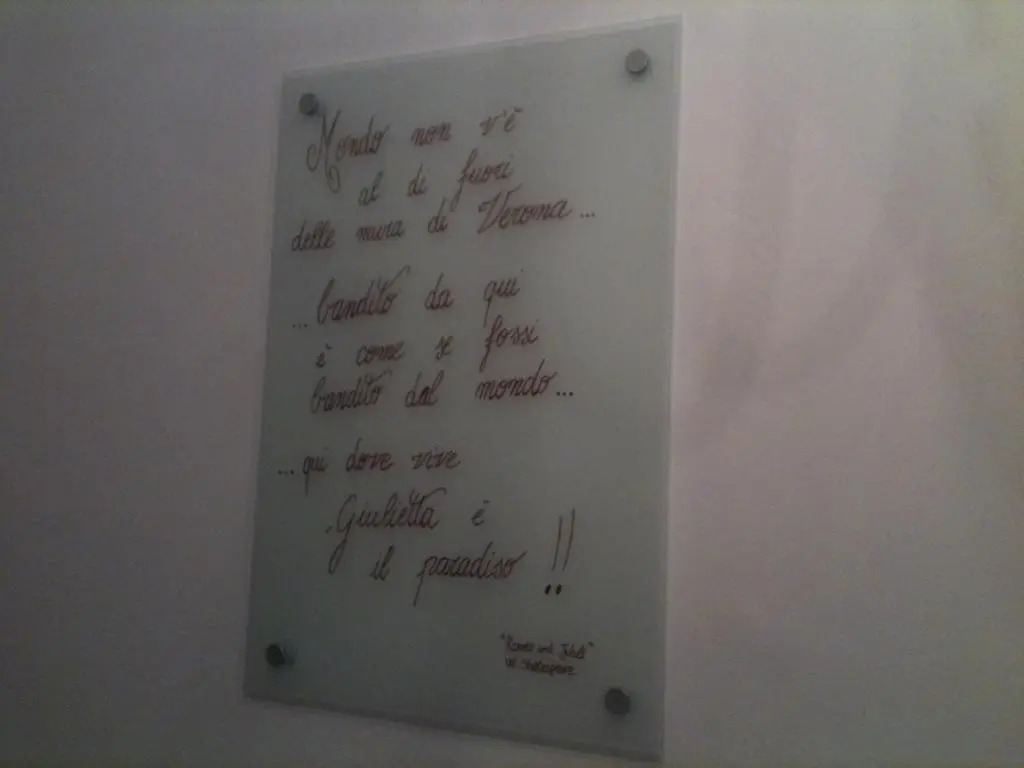 Mondo non v'è
al di fuori
delle mura di Verona...
...bandito da qui
è come se fossi
bandito dal mondo...
...qui dove vive
Giulietta è
il paradiso !!
"Romeo und Julia"
W. Shakespeare